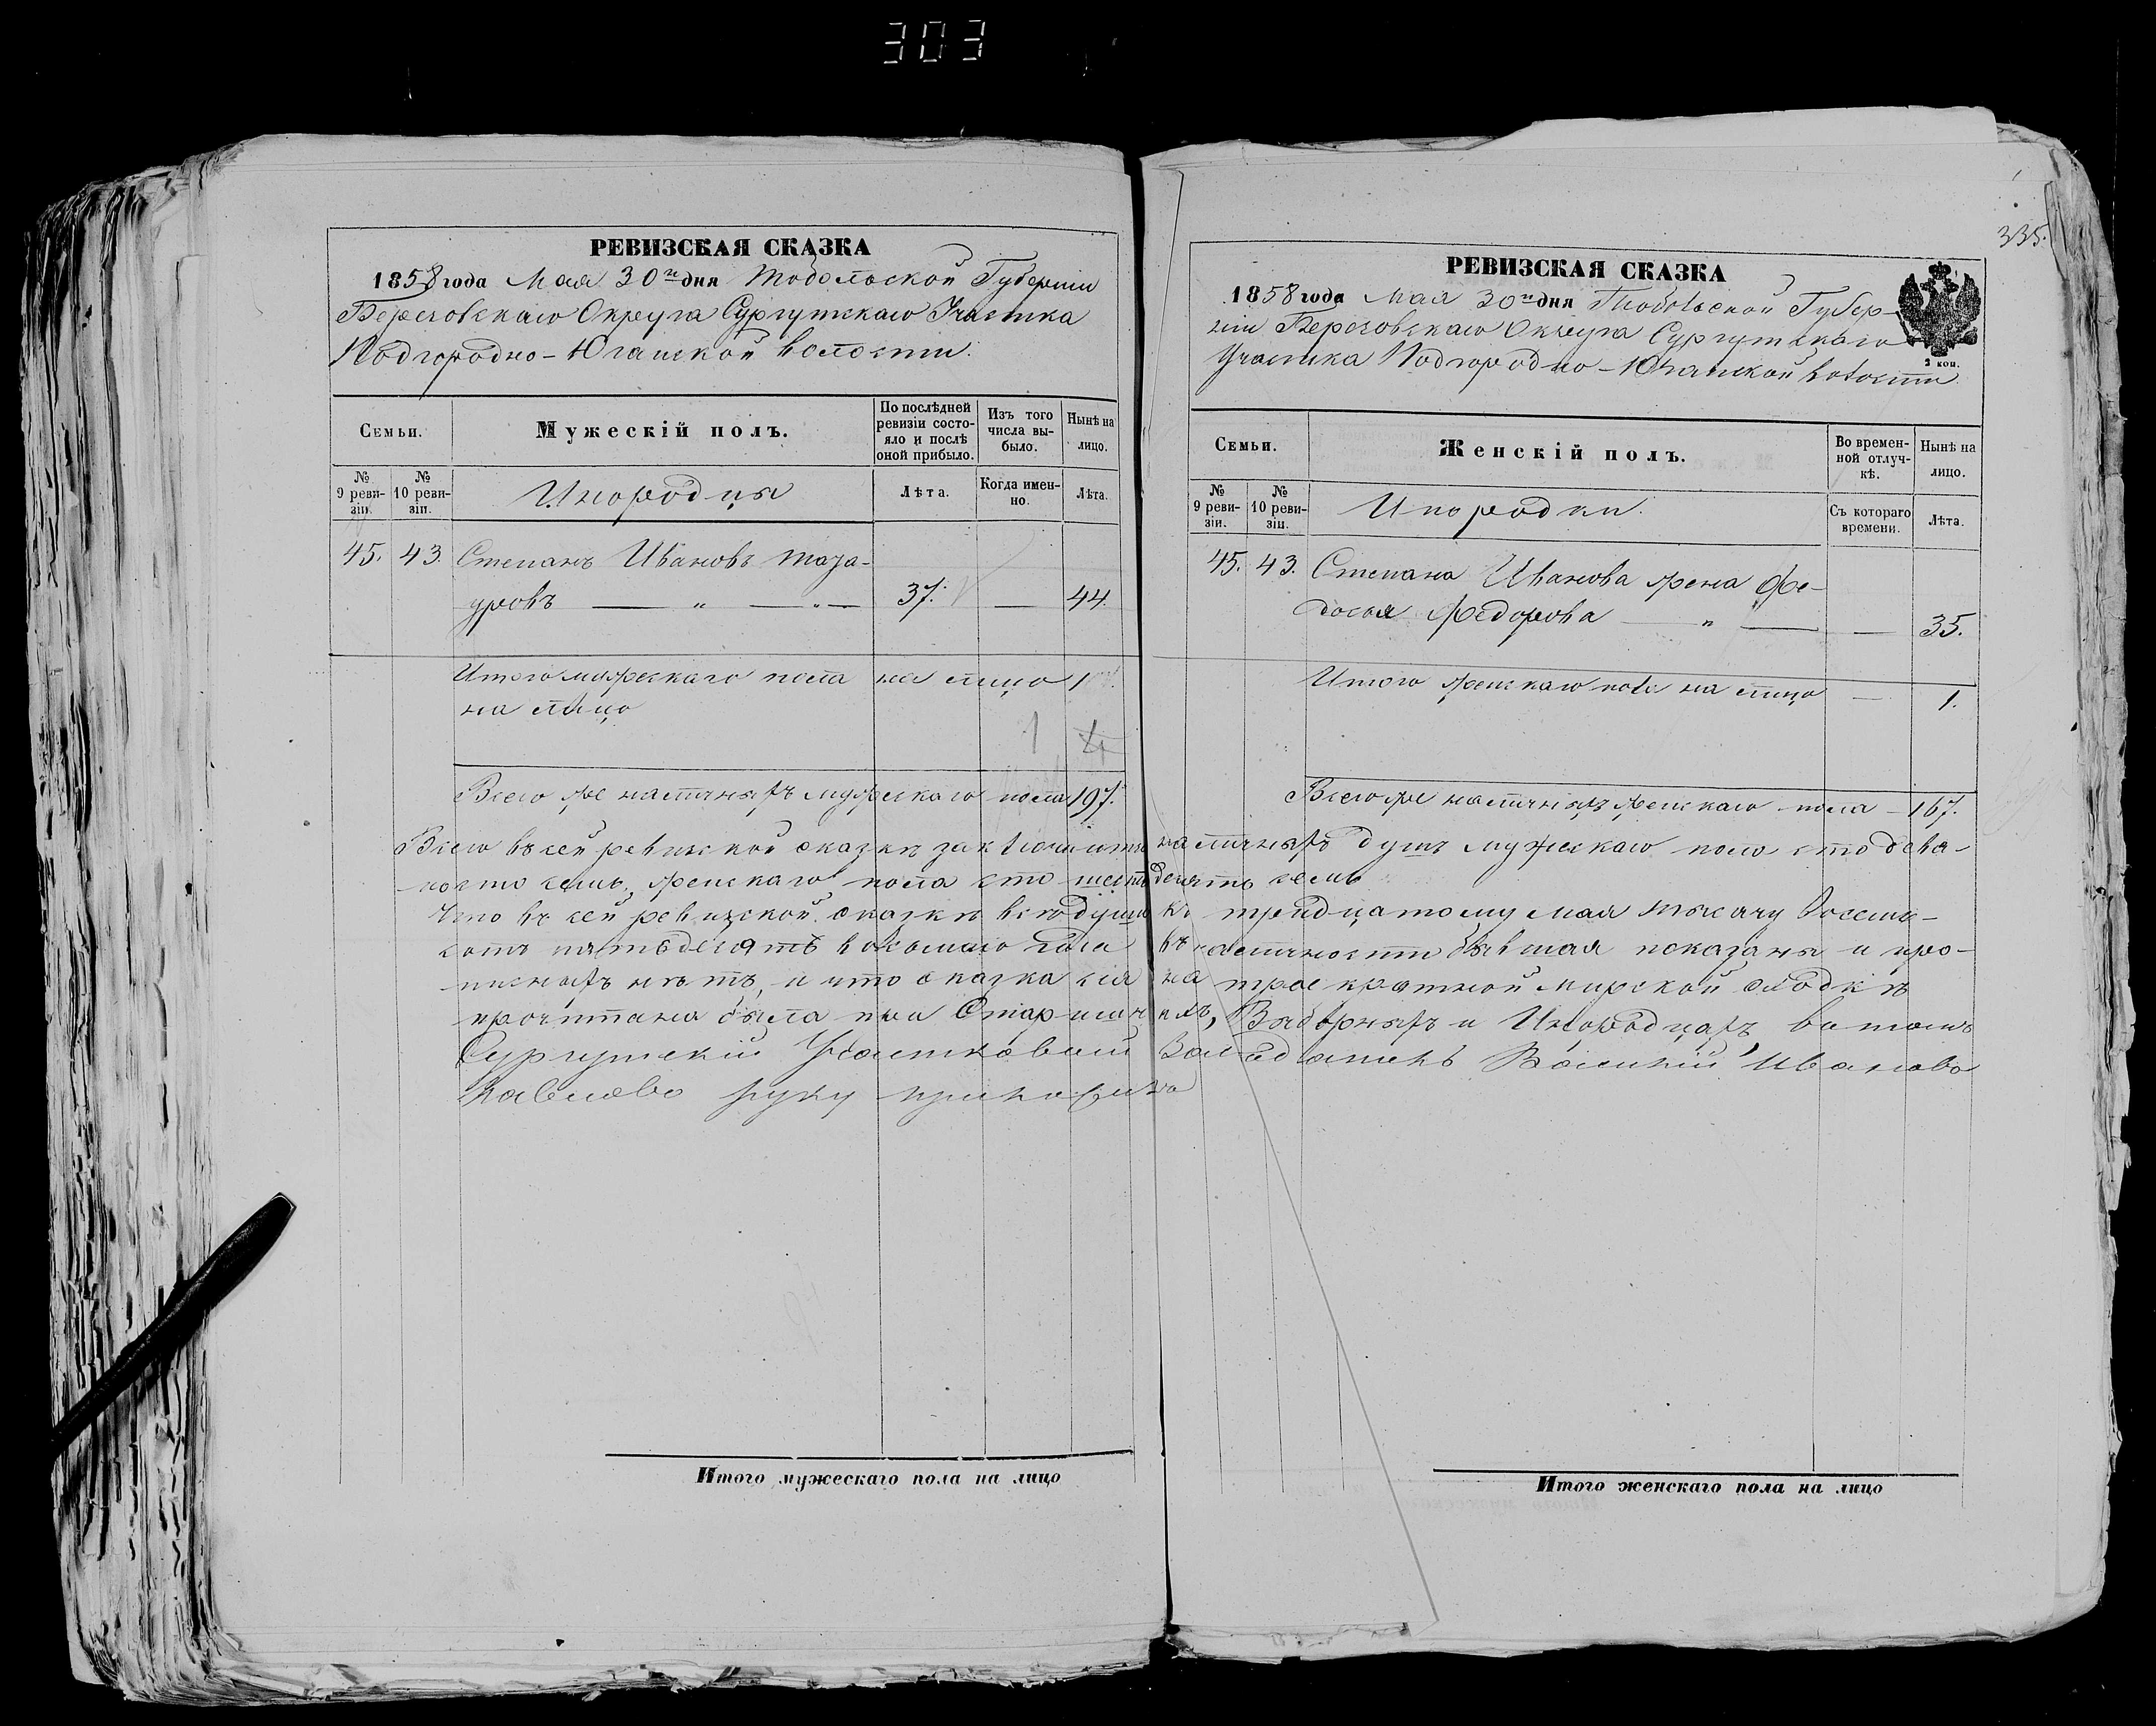 303
335.
РЕВИЗСКАЯ СКАЗКА
1858 года Мая 30го дня Тобольской Губернiи
Березовскаго Округа Сургутскаго Участка
Подгородно-Юганской волости.
Семьи.
Мужескій полъ.
По послѣдней ревизіи состояло и послѣ оной прибыло.
Изъ того числа выбыло.
Нынѣ на лицо.
№ 9 ревизіи.
№ 10 ревизіи.
Инородцы
Лѣта.
Когда именно.
Лѣта.
45. 43. Степанъ Ивановъ Таза-
уровъ — „ — „ — 37. — 44.
Итого мужескаго пола на лицо 1
на лицо
1
Всего же наличныхъ мужескаго пола 197.
РЕВИЗСКАЯ СКАЗКА
1858 года Мая 30го дня Тобольской Губер-
ніи Березовскаго Округа Сургутскаго
Участка Подгородно-Юганской волости
2 коп.
Семьи.
Женскій полъ.
Во временной отлучкѣ.
Нынѣ на лицо.
№ 9 ревизіи.
№ 10 ревизіи.
Инородки.
Съ котораго времени.
Лѣта.
45. 43. Степана Иванова жена Фе-
досья Федорова — „ — — 35.
Итого женскаго пола на лицо — 1.
Всего же наличныхъ женскаго пола — 167.
Всего въ сей ревизской сказкѣ заключается наличныхъ душъ мужескаго пола сто девя-
носто семь, женскаго пола сто шестьдесятъ семь
Что въ сей ревизской сказкѣ всѣ души къ тридцатому мая тысячу восемь-
сотъ пятьдесятъ восьмаго года въ наличности бывшая показаны и про-
писныхъ нѣтъ, и что сказка сія на троекратной мирской сходкѣ
прочитана была при Старшинѣ, Выборныхъ и Инородцахъ, въ томъ
Сургутскій Участковый Засѣдатель Василій Ивановъ
руку приложилъ
Итого мужескаго пола на лицо
Итого женскаго пола на лицо